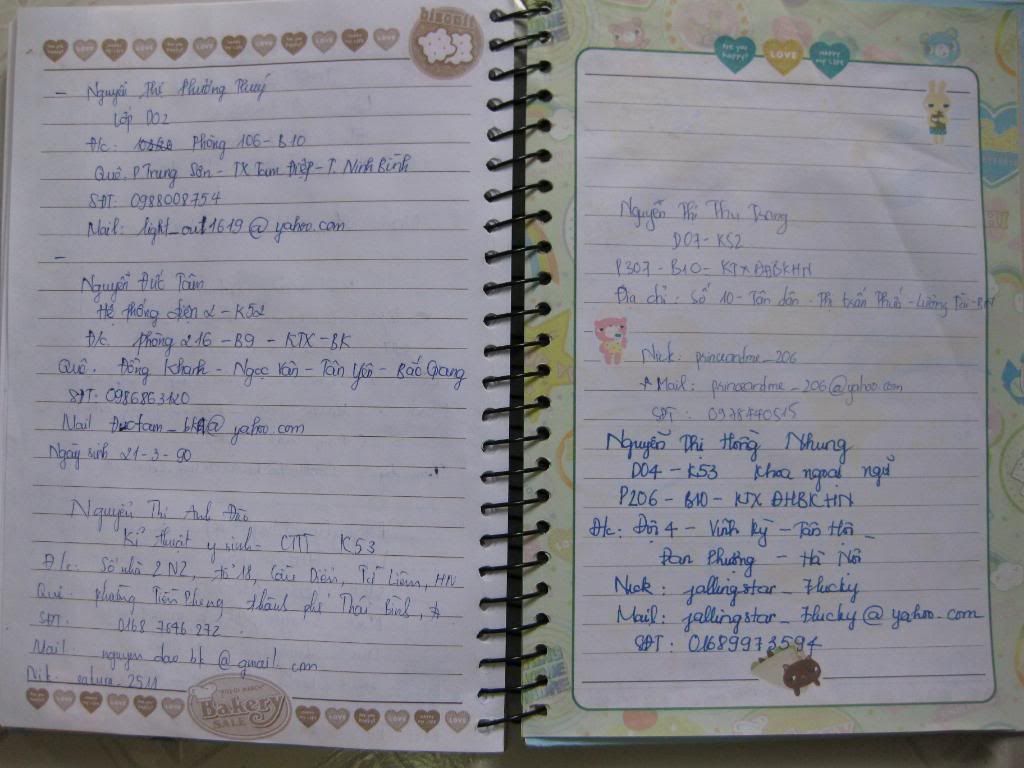 biscuit
Are you happy? LOVE HAPPY my LIFE
- Nguyễn Thị Phương Thuý
Lớp D02
Đ/c: Phòng 106 - B10
Quê. P Trung Sơn - TX Tam Điệp - T. Ninh Bình
SĐT. 0988008754
Mail: light_out1619@yahoo.com
-
Nguyễn Đức Tâm
Hệ thống điện 2 - K52
Đ/c. phòng 216 - B9 - KTX - BK
Quê. Đồng Khanh - Ngọc Vân - Tân Yên - Bắc Giang
SĐT. 0986863120
Mail Ductam_bk@yahoo.com
Ngày sinh 21-3-90
Nguyễn Thị Anh Đào
Kĩ thuật y sinh - CTTT K53
Đ/c: Số nhà 2 N2, tổ 18, Cầu Diễn, Từ Liêm, HN
Quê: phường Tiền Phong thành phố Thái Bình,
SĐT: 0168 7646 272.
Mail: nguyen dao bk @gmail.com
Nik: 2511
Bakery
SALE
Are you happy? LOVE HAPPY my LIFE
Nguyễn Thị Thu Trang
D07 - K52
P307 - B10 - KTX ĐHBKHN
Địa chỉ: Số 10 - Tân dân - Thị trấn Thứa - Lương Tài - BN
Nick: princeandme_206
* Mail: princeandme_206@yahoo.com
SĐT: 0978770515
Nguyễn Thị Hồng Nhung
D04 - K53 Khoa ngoại ngữ
P206 - B10 - KTX ĐHBKHN
Đ/c: Đội 4 - Vĩnh Kỳ - Tân Hội -
Đan Phượng - Hà Nội
Nick: fallingstar_7lucky
Mail: fallingstar_7lucky@yahoo.com
SĐT: 01689973594